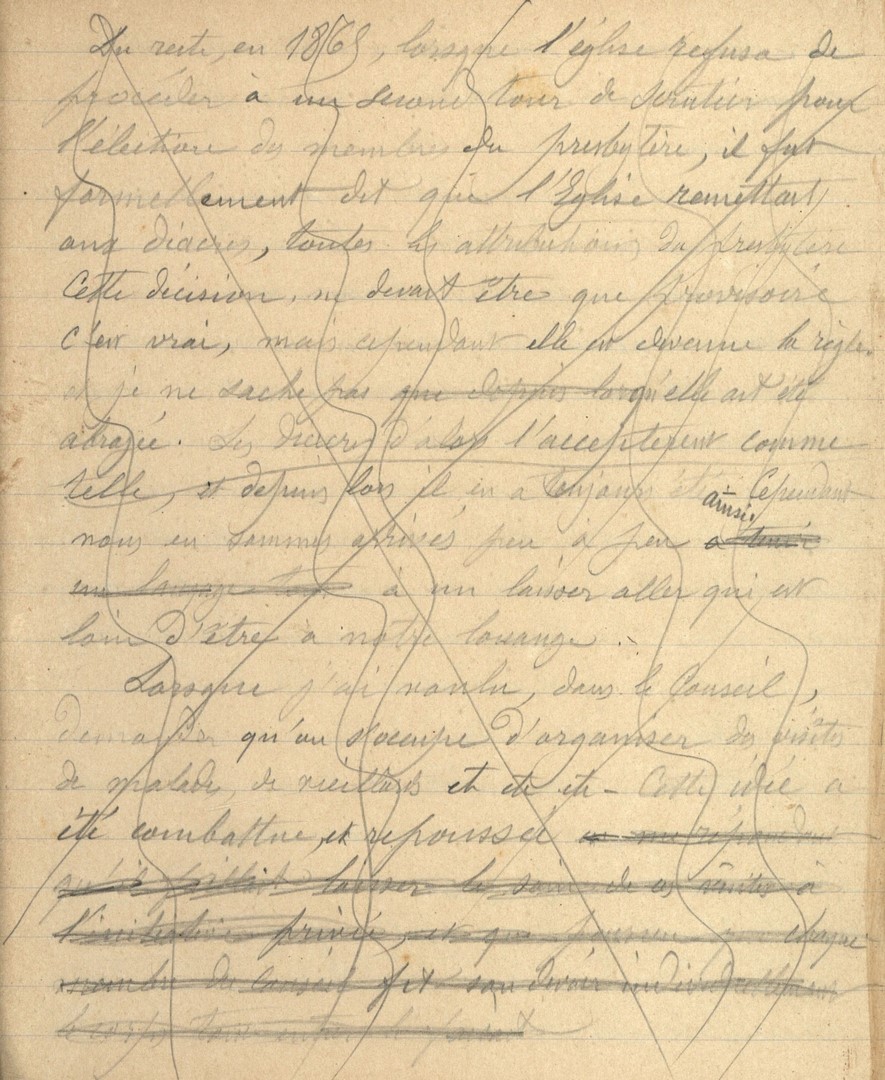 Du reste, en 1868, lorsque l'église refusa de
procéder à un second tour de scrutin pour
l'élection des membres du presbytère, il fut
formellement dit que l'Eglise remettait
aux diacres, toutes les attributions du presbytère
Cette décision, ne devait être que provisoire
c'est vrai, mais cependant elle est devenue la règle.
et je ne sache pas que depuis lors qu'elle ait été
abrogée. Les diacres d'alors l'acceptèrent comme
telle, et depuis lors il en a toujours été ainsi. Cependant
nous en sommes arrivés peu à peu à tenir
un à un laisser aller qui est
loin d'être à notre louange.
Lorsque j'ai voulu, dans le Conseil,
demander qu'on s'occupe d'organiser des visites
de malades, de vieillards et etc etc - Cette idée a
été combattue, et repoussée en me répondant
qu'il fallait laisser le soin de ces visites à
l'initiative privée, et que pourvu que chaque
membre du Conseil fit son devoir individuellement
le corps tout entier le faisait